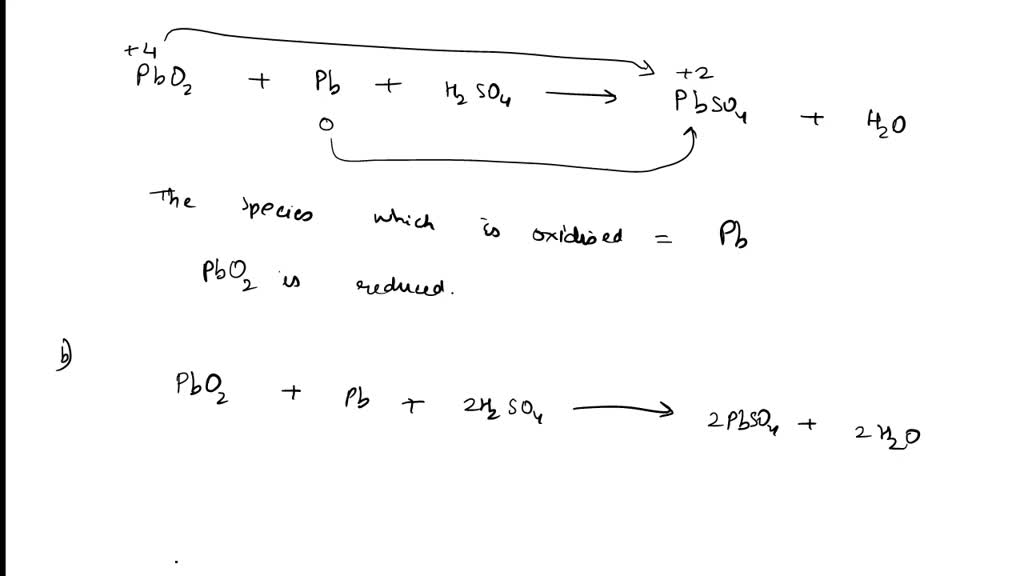 +4 +2
PbO₂ + Pb + H₂SO₄ ⟶ PbSO₄ + H₂O
0
The species which is oxidised = Pb
PbO₂ is reduced.
b)
PbO₂ + Pb + 2H₂SO₄ ⟶ 2PbSO₄ + 2H₂O